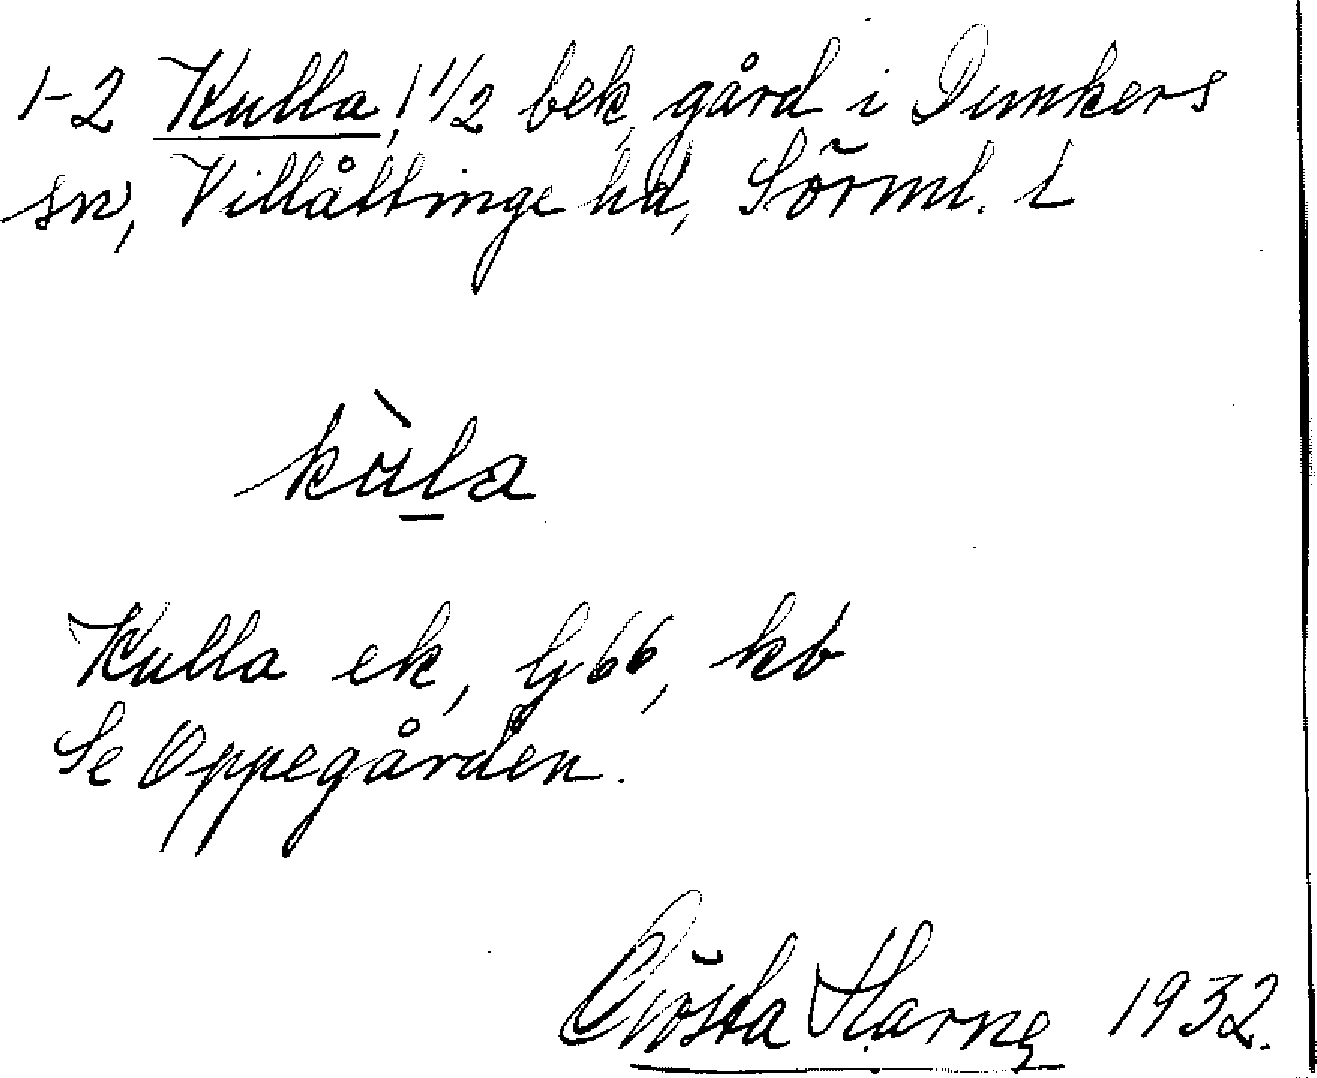 1-2 Kulla, 1 1/2 bek. gård i Dunkers
sn, Villåttinge hd, Sörml. l
kùla
Kulla ek, Gj 66, kb
Se Oppegården.
Gösta Harne 1932.